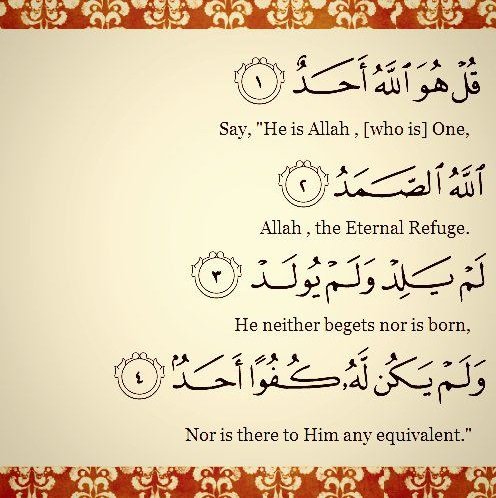 قُلْ هُوَ ٱللَّهُ أَحَدٌ ١
Say, "He is Allah , [who is] One,
ٱللَّهُ ٱلصَّمَدُ ٢
Allah , the Eternal Refuge.
لَمْ يَلِدْ وَلَمْ يُولَدْ ٣
He neither begets nor is born,
وَلَمْ يَكُن لَّهُۥ كُفُوًا أَحَدٌۢ ٤
Nor is there to Him any equivalent."